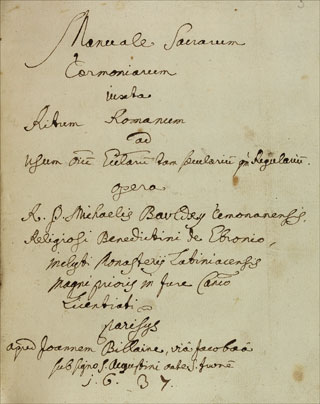 Manuale Sacrarum
Cærmoniarum
iuxta
Ritum Romanum
ad
Usum Ecclarum tam sæcularium qm Regularium.
opera
R. P. Michaelis Bauldry Cemonanensis.
Religiosi Benedictini de Ebronio,
inclyti Monasterii Latiniacensis
magni prioris in Jure Canco
Licentiati
parisijs
apud Joannem Billaine, via Jacobæa
sub signo S. Augustini
1. 6. 3 7.